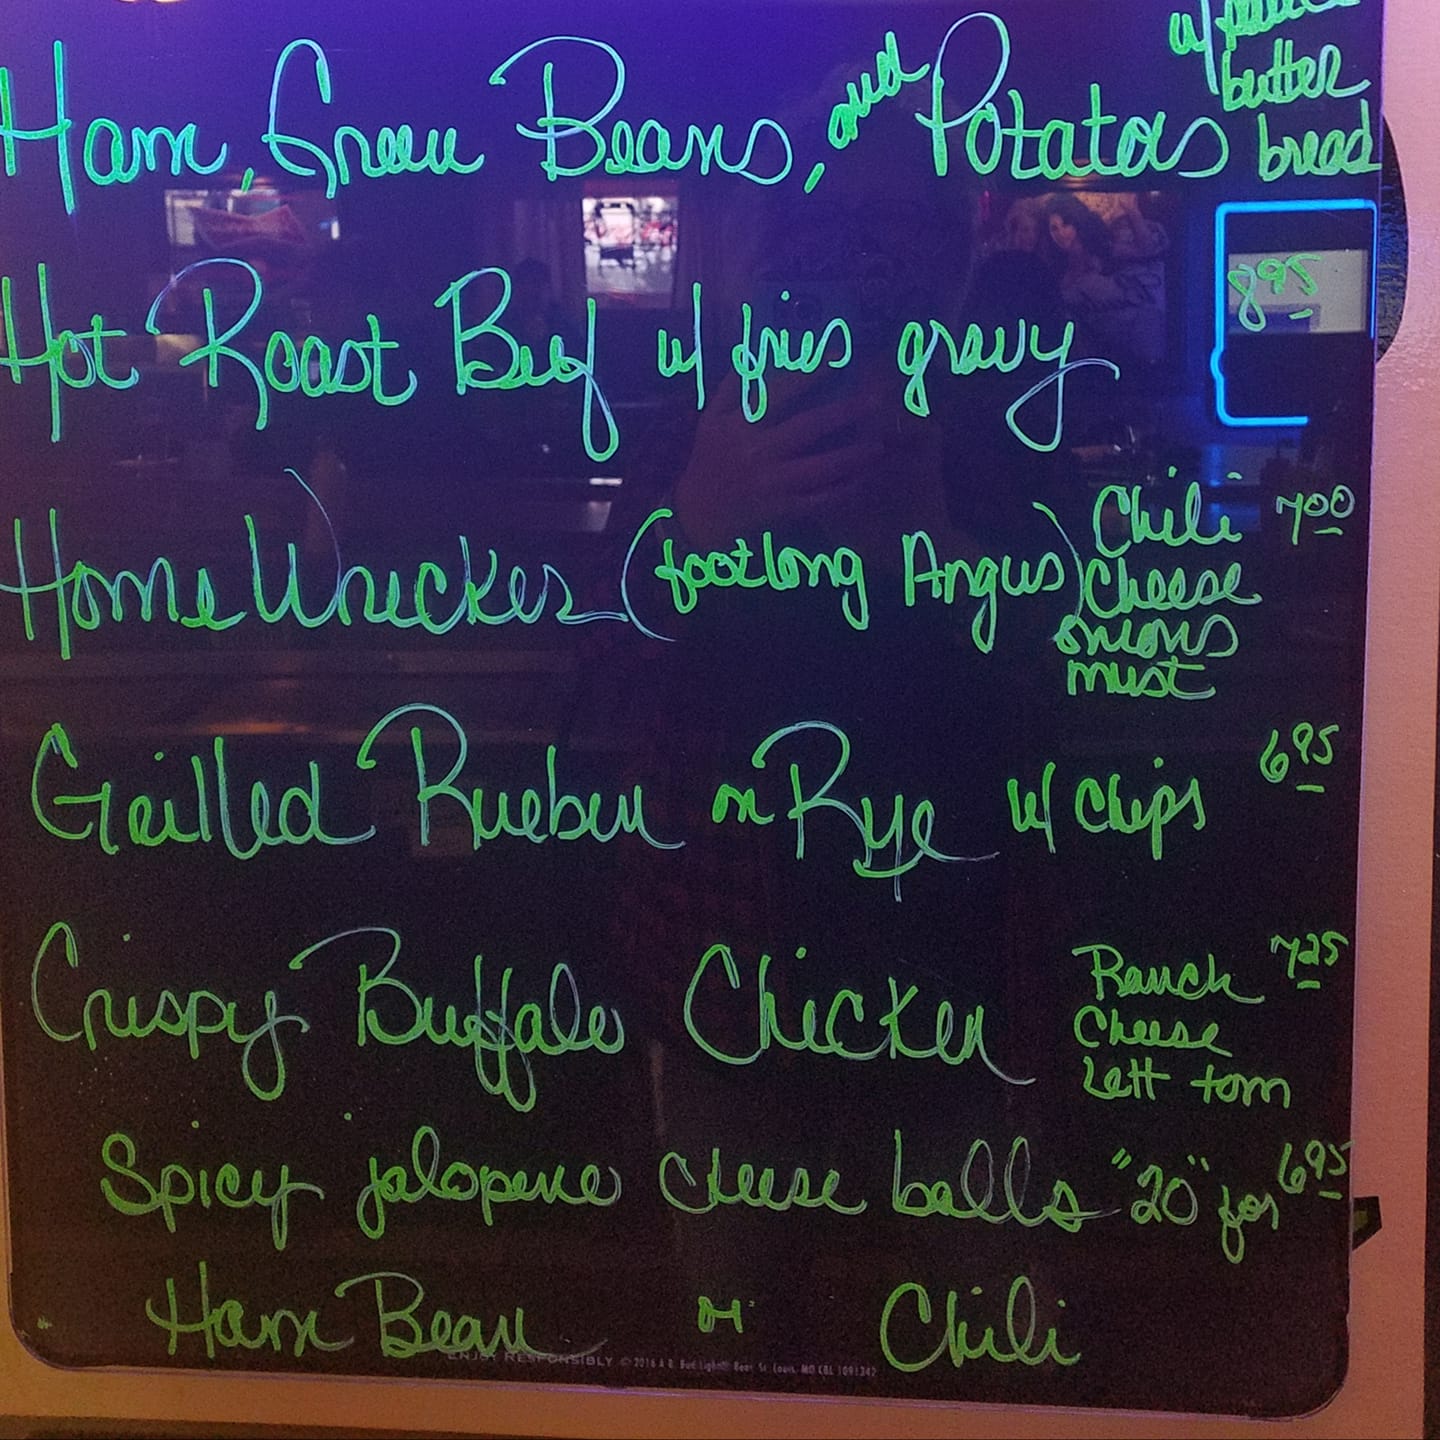 Ham, Green Beans, and Potatoes w/
butter
bread
Hot Roast Beef w/ fries gravy 8.95
Home Wrecker (footlong Angus) Chili 7.00
Cheese
onions
must
Grilled Rueben on Rye w/ chips 6.95
Crispy Buffalo Chicken Ranch 7.25
Cheese
Lett tom
Spicy jalopeno cheese balls "20" for 6.95
Ham Bean or Chili
ENJOY RESPONSIBLY © 2016 A-B, Bud Light® Beer, St. Louis, MO LBL 1091342